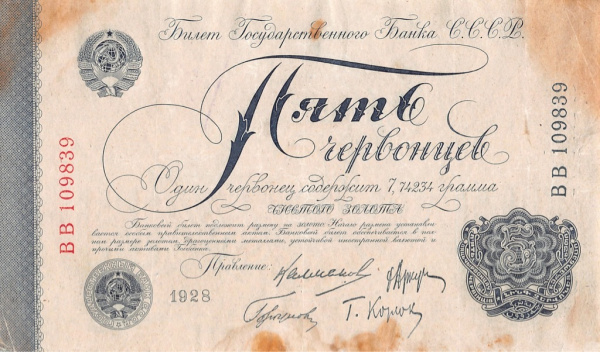 Билет Государственного Банка С.С.С.Р.
Пять
червонцев
Один червонец содержит 7,74234 грамма
чистого золота
Банковый билет подлежит размену на золото. Начало размена устанавли-
вается особым правительственным актом. Банковые билеты обеспечиваются в пол-
ном размере золотом, драгоценными металлами, устойчивой иностранной валютой и
прочими активами Госбанка.
Правление:
1928
ВВ 109839
ВВ 109839
5